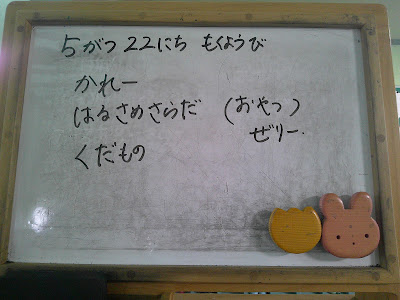 5がつ22にち もくようび
かれー
はるさめさらだ (おやつ)
ぜリー.
くだもの